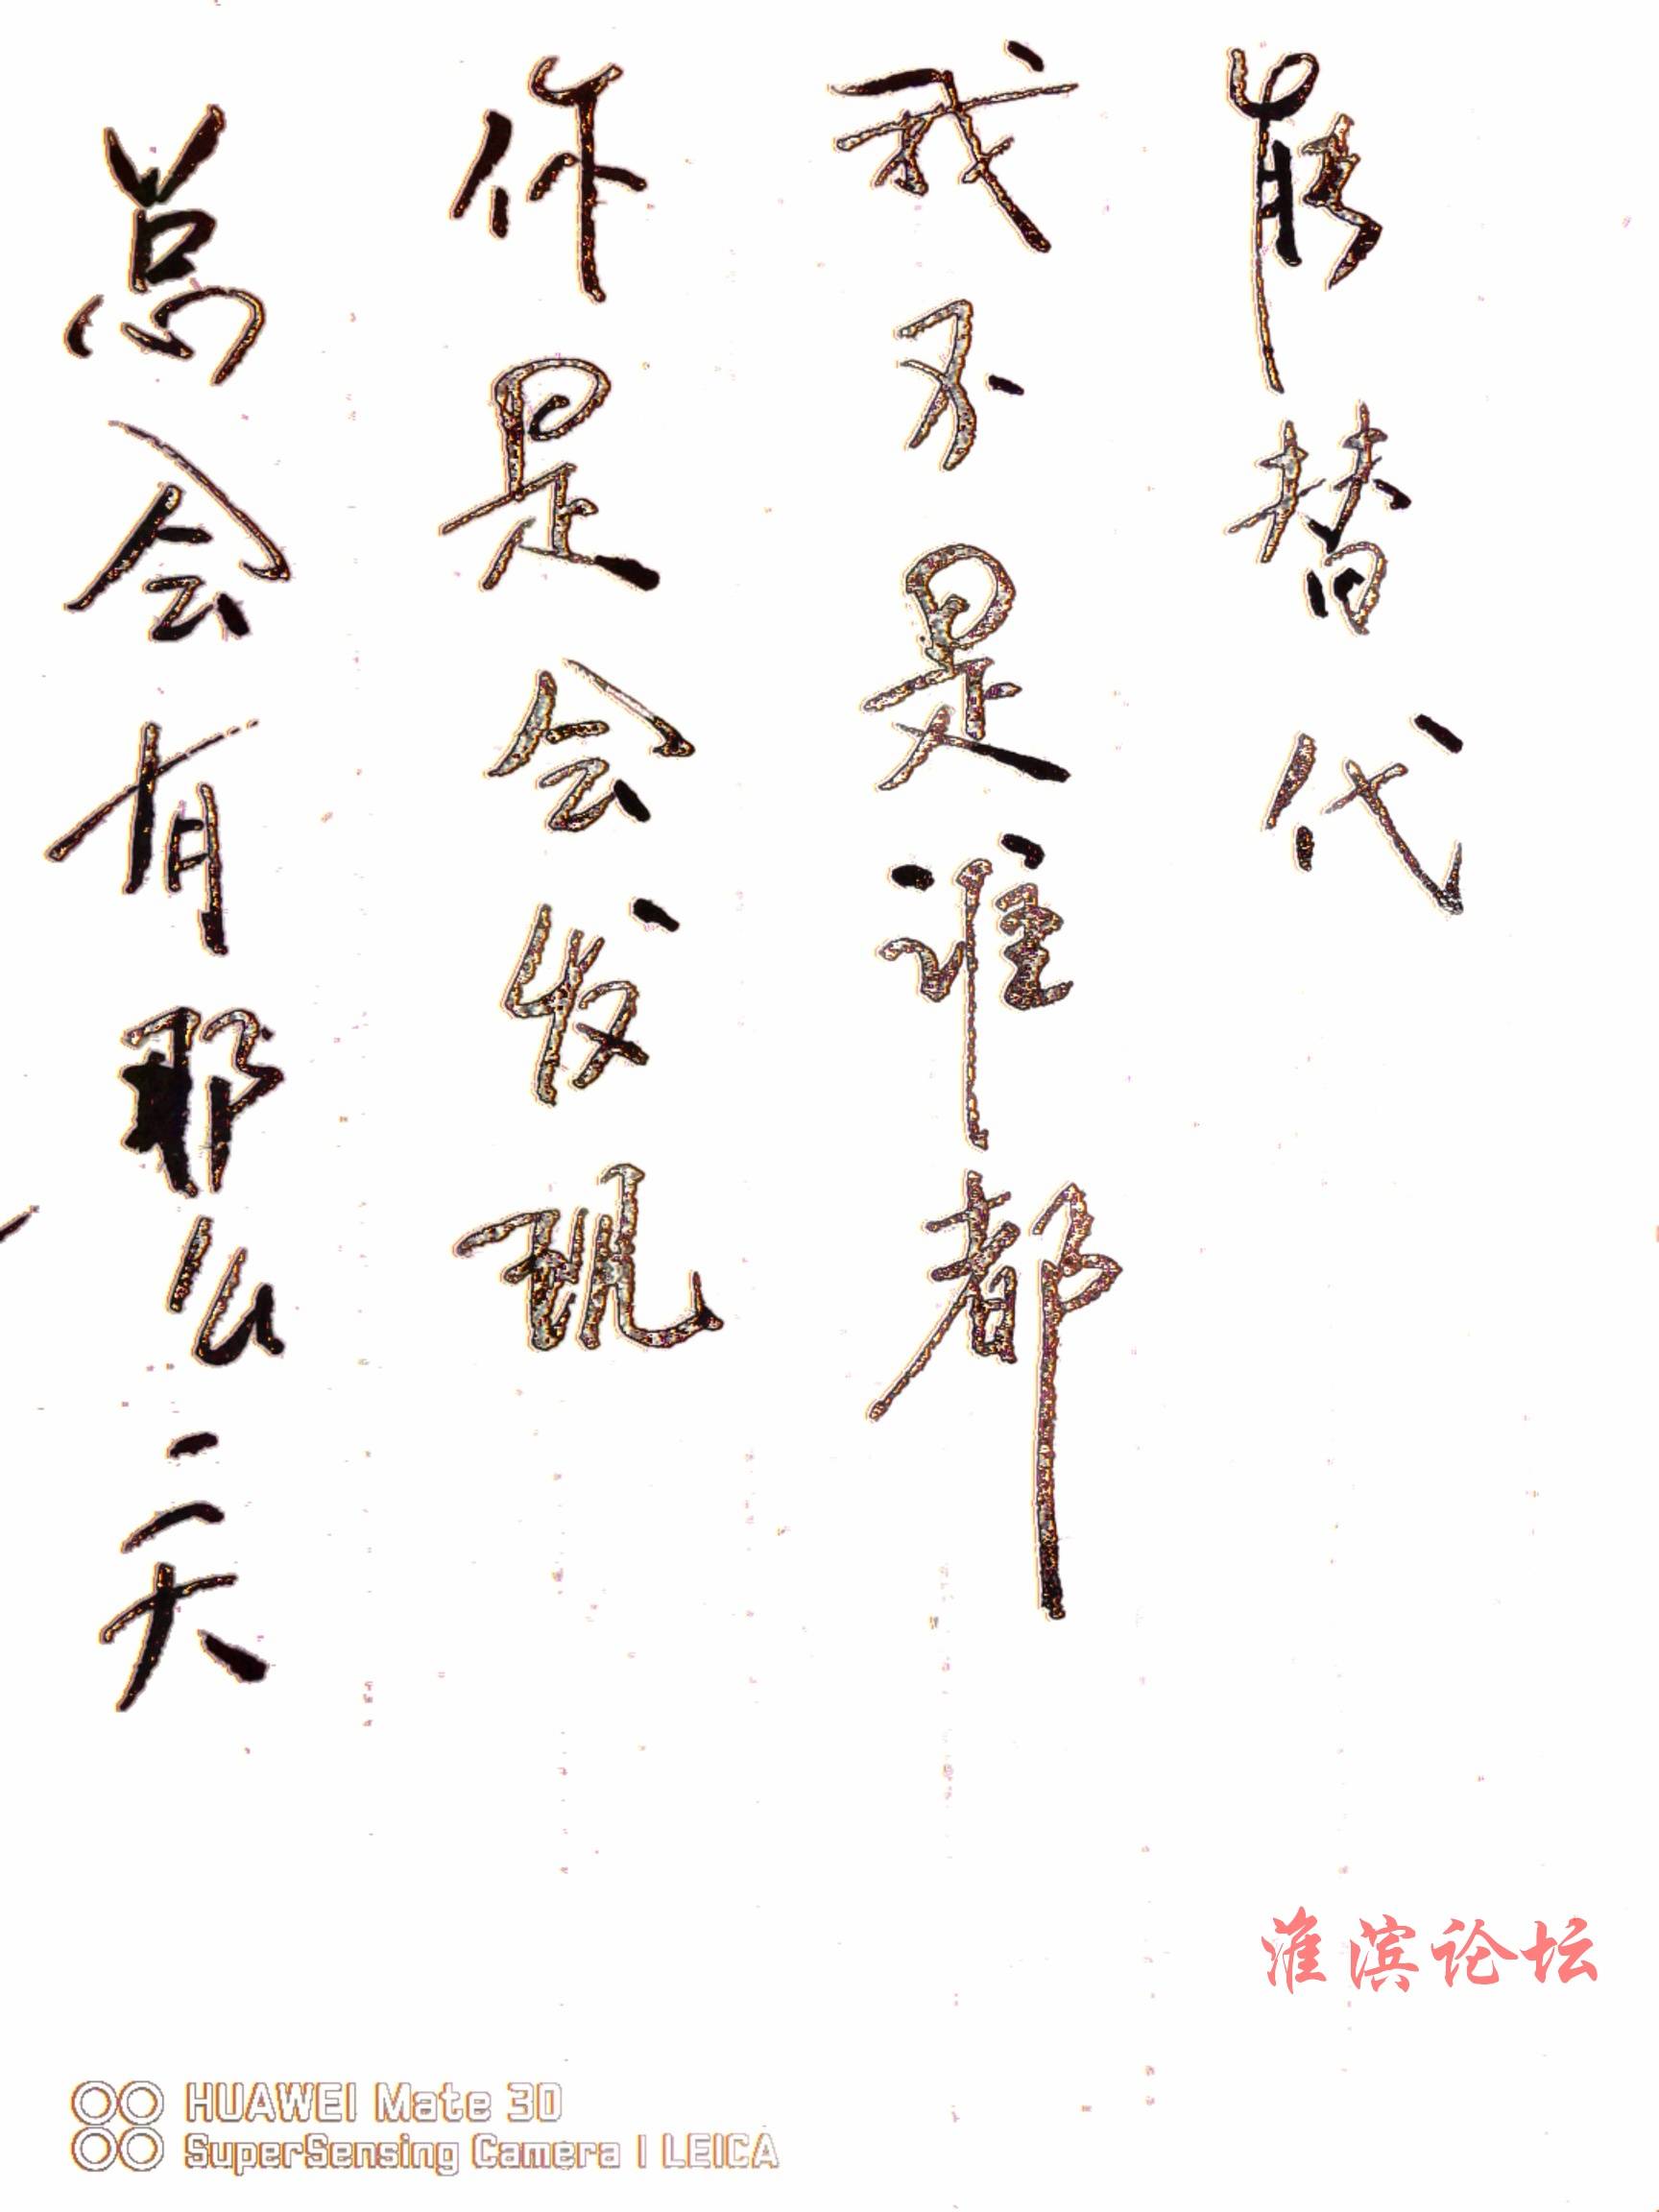 总会有那么一天
你是会发现
我不是谁都
能替代
淮滨论坛
HUAWEI Mate 30
SuperSensing Camera | LEICA